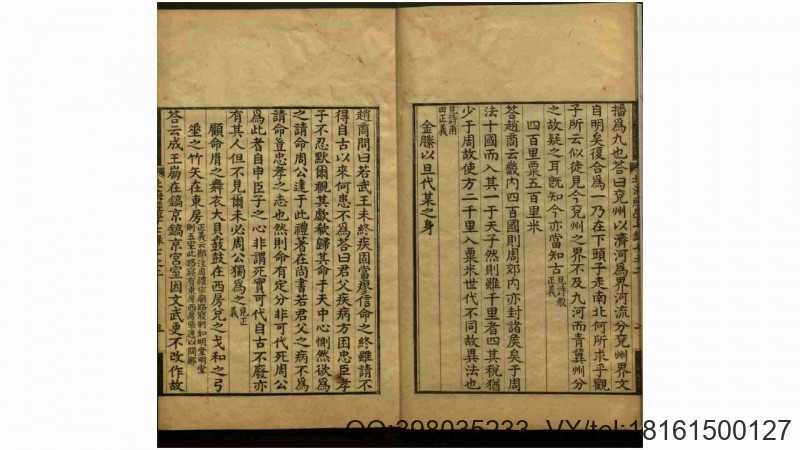 播爲九也答曰兗州以濟河爲界河流分兗州界文
自明矣復合爲一乃在下頭子走南北何所求乎觀
子所云似徒見今兗州之界不及九河而青冀州分
之故疑之耳旣知今亦當知古見詩般正義
四百里粟五百里米
荅趙商云畿内四百國則周郊内亦封諸矦矣于周
法十國而入其一于天子然則雖千里者四其稅猶
少于周故使方二千里入粟米世代不同故異法也
見詩甫田正義
金縢以旦代某之身
趙商問曰若武王未終疾固當瘳信命之終雖請不
得自古以來何患不爲荅曰君父疾病方困忠臣孝
子不忍默爾視其歔欷歸其命于天中心惻然欲爲
之請命周公達于此禮著在尚書若君父之病不爲
請命豈忠孝之志也然則命有定分非可代死周公
爲此者自申臣子之心非謂死實可代自古不廢亦
有其人但不見爾未必周公獨爲之見正義
顧命胤之舞衣大貝鼖鼓在西房兌之戈和之弓
垂之竹矢在東房
荅云成王崩在鎬京鎬京宮室因文武更不改作故
QQ:398035233 VX/tel:18161500127